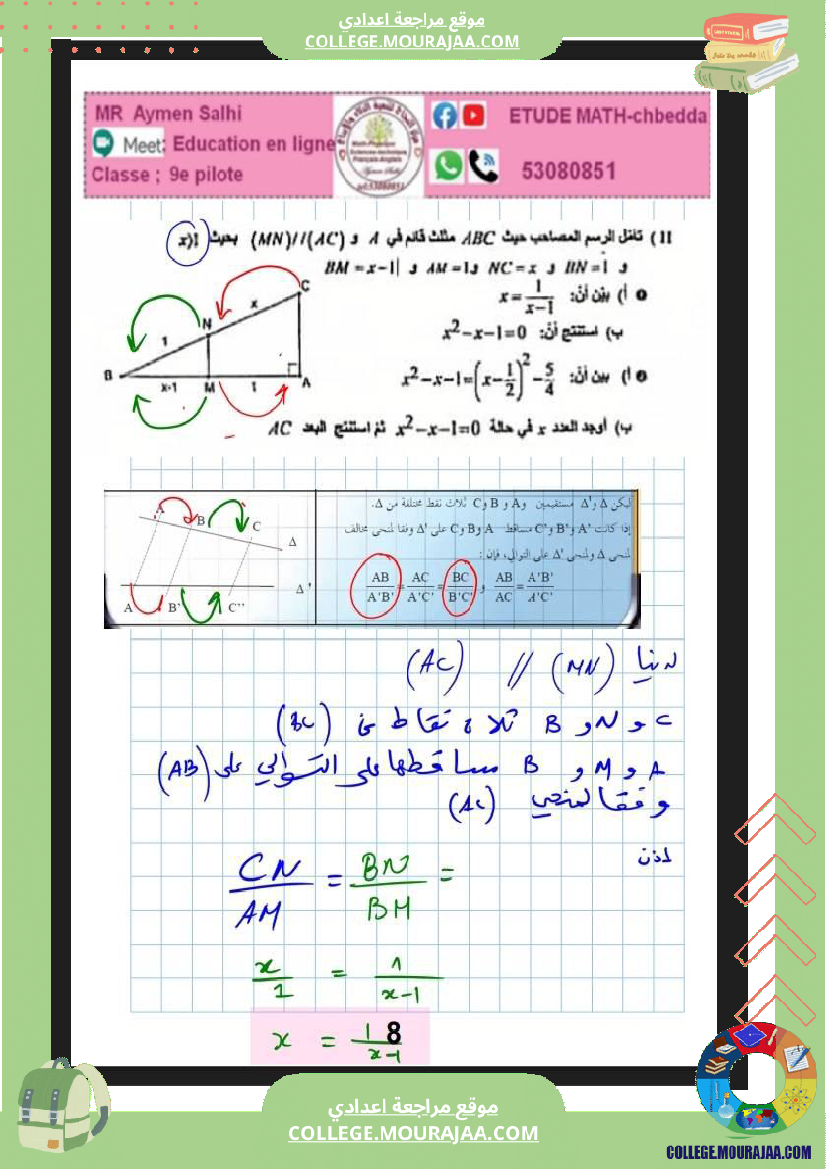 موقع مراجعة اعدادي
COLLEGE.MOURAJAA.COM
MR Aymen Salhi
Meet: Education en ligne
Classe ; 9e pilote
ETUDE MATH-chbedda
53080851
11) تأمّل الرسم المصاحب حيث ABC مثلث قائم في A و (MN)//(AC) بحيث x⟩1
و BN=1 و NC=x و AM=1 و BM=x-1
❶ أ) بيّن أنّ: x=1/(x-1)
ب) استنتج أنّ: x²-x-1=0
❷ أ) بيّن أنّ: x²-x-1=(x-1/2)²-5/4
ب) أوجد العدد x في حالة x²-x-1=0 ثمّ استنتج البعد AC
C
x
N
1
B
x-1
M
1
A
ليكن Δ و Δ' مستقيمين و A و B و C ثلاث نقط مختلفة من Δ.
إذا كانت A' و B' و C' مساقط A و B و C على Δ' وفقا لمنحى مخالف
لمنحى Δ ولمنحى Δ' على التوالي، فإن:
AB/A'B' = AC/A'C' = BC/B'C' و AB/AC = A'B'/A'C'
A
B
C
Δ
Δ'
A
B'
C''
لدينا (MN) // (AC)
C و N و B ثلاث نقاط من (BC)
A و M و B مساقطها على التوالي على (AB)
وفقا لمنحى (AC)
اذن
CN/AM = BN/BM =
x/1 = 1/(x-1)
x = 1/(x-1)
8
موقع مراجعة اعدادي
COLLEGE.MOURAJAA.COM
COLLEGE.MOURAJAA.COM